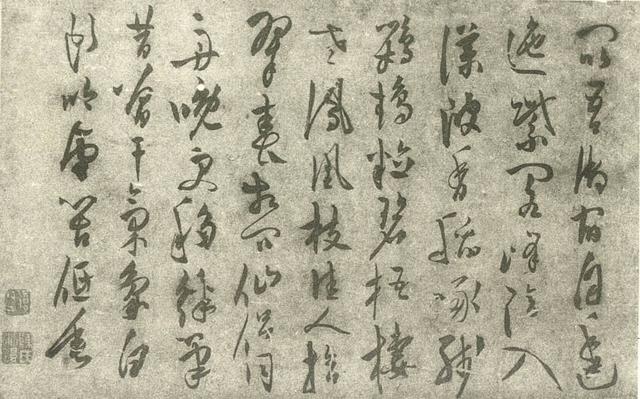 昆吾御宿自逶
迤紫閣峰陰入
渼陂香稻啄殘
鸚鵡粒碧梧棲
老鳳凰枝佳人拾
翠春相問仙侶同
舟晚更移綵筆
昔曾干氣象白
頭吟望苦低垂